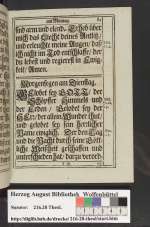 am Montag.
sind arm und elend. Erheb über
mich das Liecht deines Antlitz/
und erleuchte meine Augen/ daß
ich nicht im Tod entschlaffe/ der
du lebest und regierest in Ewig-
keit/ Amen.
Morgensegen am Dienstag.
Gelobet sey GOTT/ der
Schöpffer Himmels und
der Erden/ Gelobet sey der
HErr/ der allein Wunder thut/
und gelobet sey sein herrlicher
Name ewiglich. Der den Tag
und die Nacht durch seine Göttliche
Weißheit geschaffen und
unterschieden hat, darzu
Herzog August Bibliothek Wolfenbüttel
Signatur: 216.28 Theol.
https://diglib.hab.de/drucke/216-28-theol/start.htm